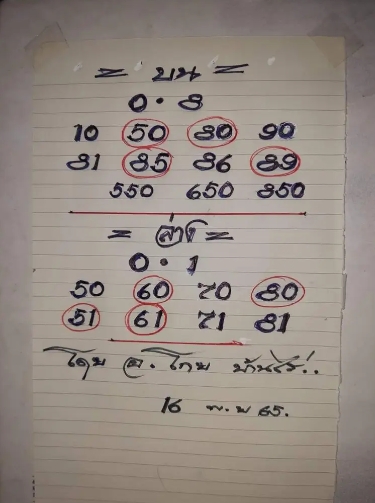 = บน =
0 · 8
10 50 80 90
81 85 86 89
550 650 850
= ล่าง =
0 · 1
50 60 70 80
51 61 71 81
โดย อ. โกย บ้านไร่..
16 พ.ย 65.